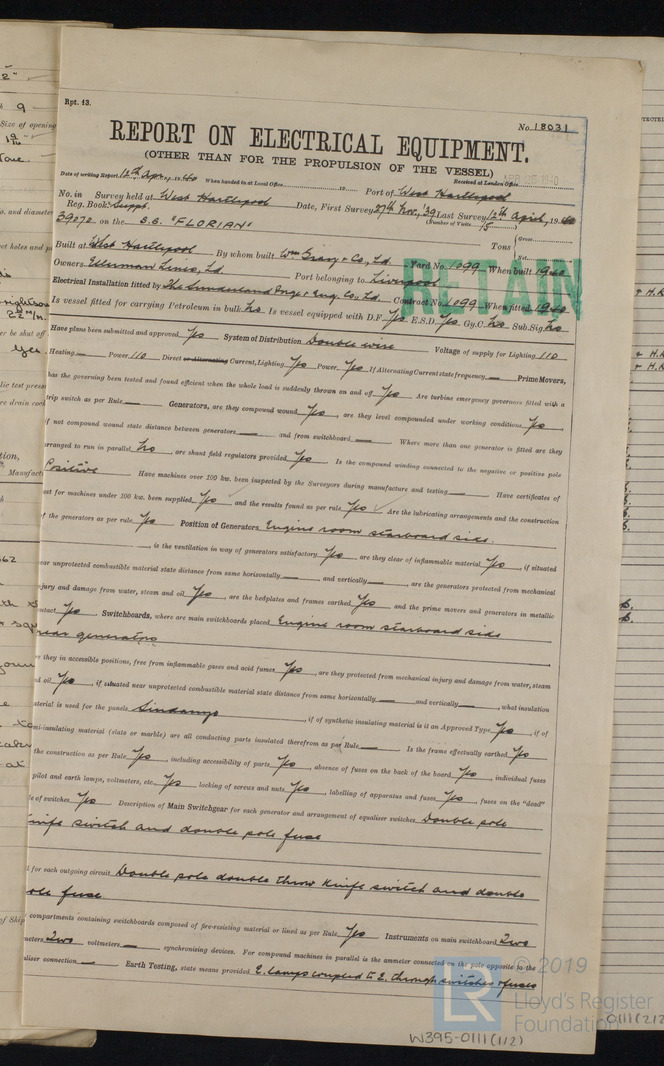 Rpt. 13.
No. 18031
REPORT ON ELECTRICAL EQUIPMENT.
(OTHER THAN FOR THE PROPULSION OF THE VESSEL)
Date of writing Report 12th Apr. 1940 When handed in at Local Office 19 Port of West Hartlepool Received at London Office
No. in Survey held at West Hartlepool Date, First Survey 27th Nov. '39 Last Survey 12th April, 1940
Reg. Book. Suppt. (Number of Visits 15)
39072 on the S.S. "FLORIAN" Tons Gross Net
Built at West Hartlepool By whom built Wm Gray & Co., Ld. Yard No. 1099 When built 1940
Owners Ellerman Lines, Ld. Port belonging to Liverpool
RETAIN
Electrical Installation fitted by The Sunderland Forge & Eng. Co., Ld. Contract No. 1099 When fitted 1940
Is vessel fitted for carrying Petroleum in bulk No Is vessel equipped with D.F. Yes E.S.D. Yes Gy.C. No Sub.Sig. No
Have plans been submitted and approved Yes System of Distribution Double wire Voltage of supply for Lighting 110
Heating — Power 110 Direct or Alternating Current, Lighting Yes Power Yes If Alternating Current state frequency — Prime Movers,
has the governing been tested and found efficient when the whole load is suddenly thrown on and off Yes Are turbine emergency governors fitted with a
trip switch as per Rule — Generators, are they compound wound Yes, are they level compounded under working conditions Yes,
if not compound wound state distance between generators — and from switchboard — Where more than one generator is fitted are they
arranged to run in parallel No, are shunt field regulators provided Yes Is the compound winding connected to the negative or positive pole
Positive Have machines over 100 kw. been inspected by the Surveyors during manufacture and testing — Have certificates of
est for machines under 100 kw. been supplied Yes and the results found as per rule Yes Are the lubricating arrangements and the construction
of the generators as per rule Yes Position of Generators Engine room starboard side.
, is the ventilation in way of generators satisfactory Yes, are they clear of inflammable material Yes, if situated
ear unprotected combustible material state distance from same horizontally — and vertically —, are the generators protected from mechanical
njury and damage from water, steam and oil Yes, are the bedplates and frames earthed Yes and the prime movers and generators in metallic
contact Yes Switchboards, where are main switchboards placed Engine room starboard side
near generators
re they in accessible positions, free from inflammable gases and acid fumes Yes, are they protected from mechanical injury and damage from water, steam
nd oil Yes, if situated near unprotected combustible material state distance from same horizontally — and vertically —, what insulation
aterial is used for the panels Sindanyo, if of synthetic insulating material is it an Approved Type Yes, if of
mi-insulating material (slate or marble) are all conducting parts insulated therefrom as per Rule — Is the frame effectually earthed Yes
the construction as per Rule Yes, including accessibility of parts Yes, absence of fuses on the back of the board Yes, individual fuses
pilot and earth lamps, voltmeters, etc. Yes locking of screws and nuts Yes, labelling of apparatus and fuses Yes, fuses on the "dead"
le of switches Yes Description of Main Switchgear for each generator and arrangement of equaliser switches Double pole
knife switch and double pole fuse
d for each outgoing circuit Double pole double throw knife switch and double
ole fuse
compartments containing switchboards composed of fire-resisting material or lined as per Rule Yes Instruments on main switchboard Two
meters Two voltmeters — synchronising devices. For compound machines in parallel is the ammeter connected on the pole opposite to the
aliser connection — Earth Testing, state means provided E. lamps coupled to E. through switches & fuses
LR © 2019
Lloyd's Register
Foundation
W395-0111(1/2)